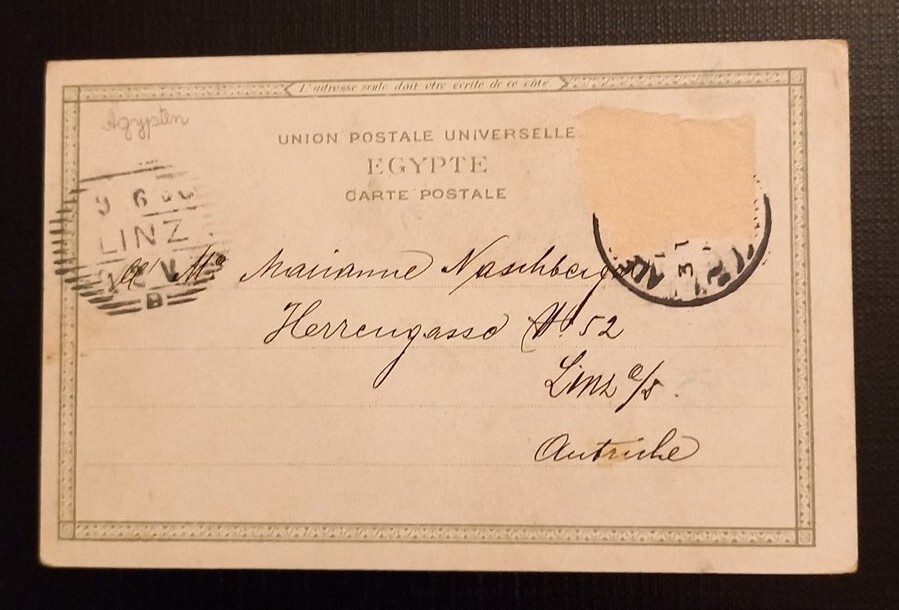 L'adresse seule doit être écrite de ce côté.
Ägypten
UNION POSTALE UNIVERSELLE
EGYPTE
CARTE POSTALE
9 6
LINZ
V
B
Marianne
Herrengasse № 52
Linz a/D.
Autriche